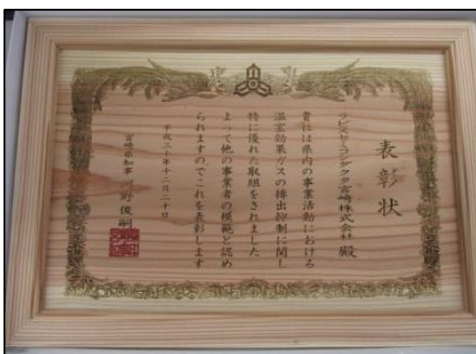 表彰状
ラピスセミコンダクタ宮崎株式会社 殿
貴社は県内の事業活動における
温室効果ガスの排出抑制に関し
特に優れた取組をされました
よって他の事業者の模範と認め
られますのでこれを表彰します
平成三十年十二月二十日
宮崎県知事 河野俊嗣